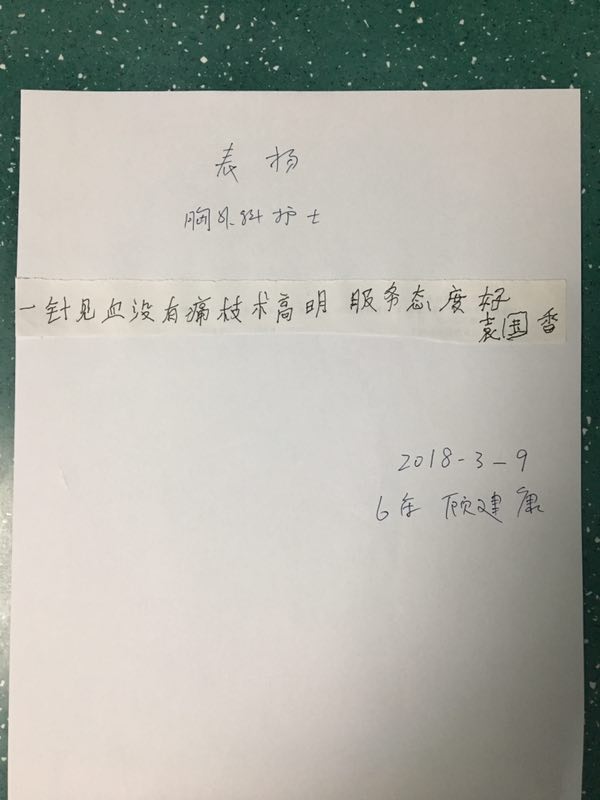 表扬
胸外科护士
一针见血没有痛技术高明 服务态度好
袁国香
2018-3-9
6年 顾建康